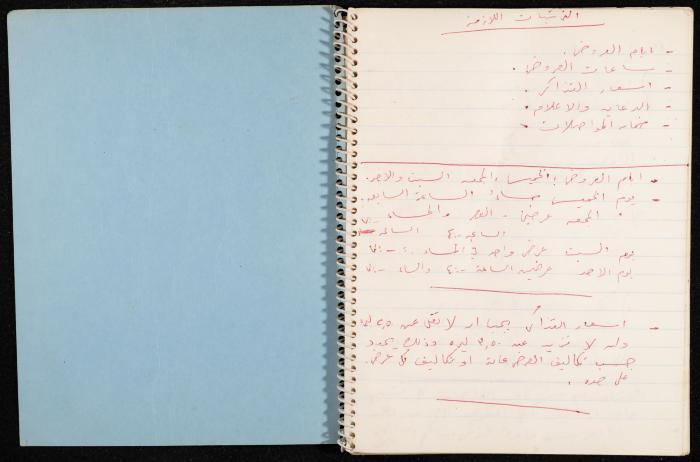 الترتيبات اللازمة
- ايام العروض.
- ساعات العروض.
- اسعار التذاكر.
- الدعايه والاعلام.
- المواصلات.
- ايام العروض: الخميس، الجمعه السبت والاحد.
- يوم الخميس مساءً الساعة السابعه.
الجمعه عرضين - العصر والمساء ٧٠٠
الساعه ٤٠٠ الساعه
يوم السبت عرض واحد في المساء ٧٠٠
يوم الاحد عرضين الساعة ٤٠٠ والمساء ٧٠٠
- اسعار التذاكر يجب ان لا تقل عن ٢,٥ ليره
ولا تزيد عن ٣,٥٠ ليره وذلك يحدد
حسب تكاليف العرض عامة او تكاليف كل عرض
على حده.